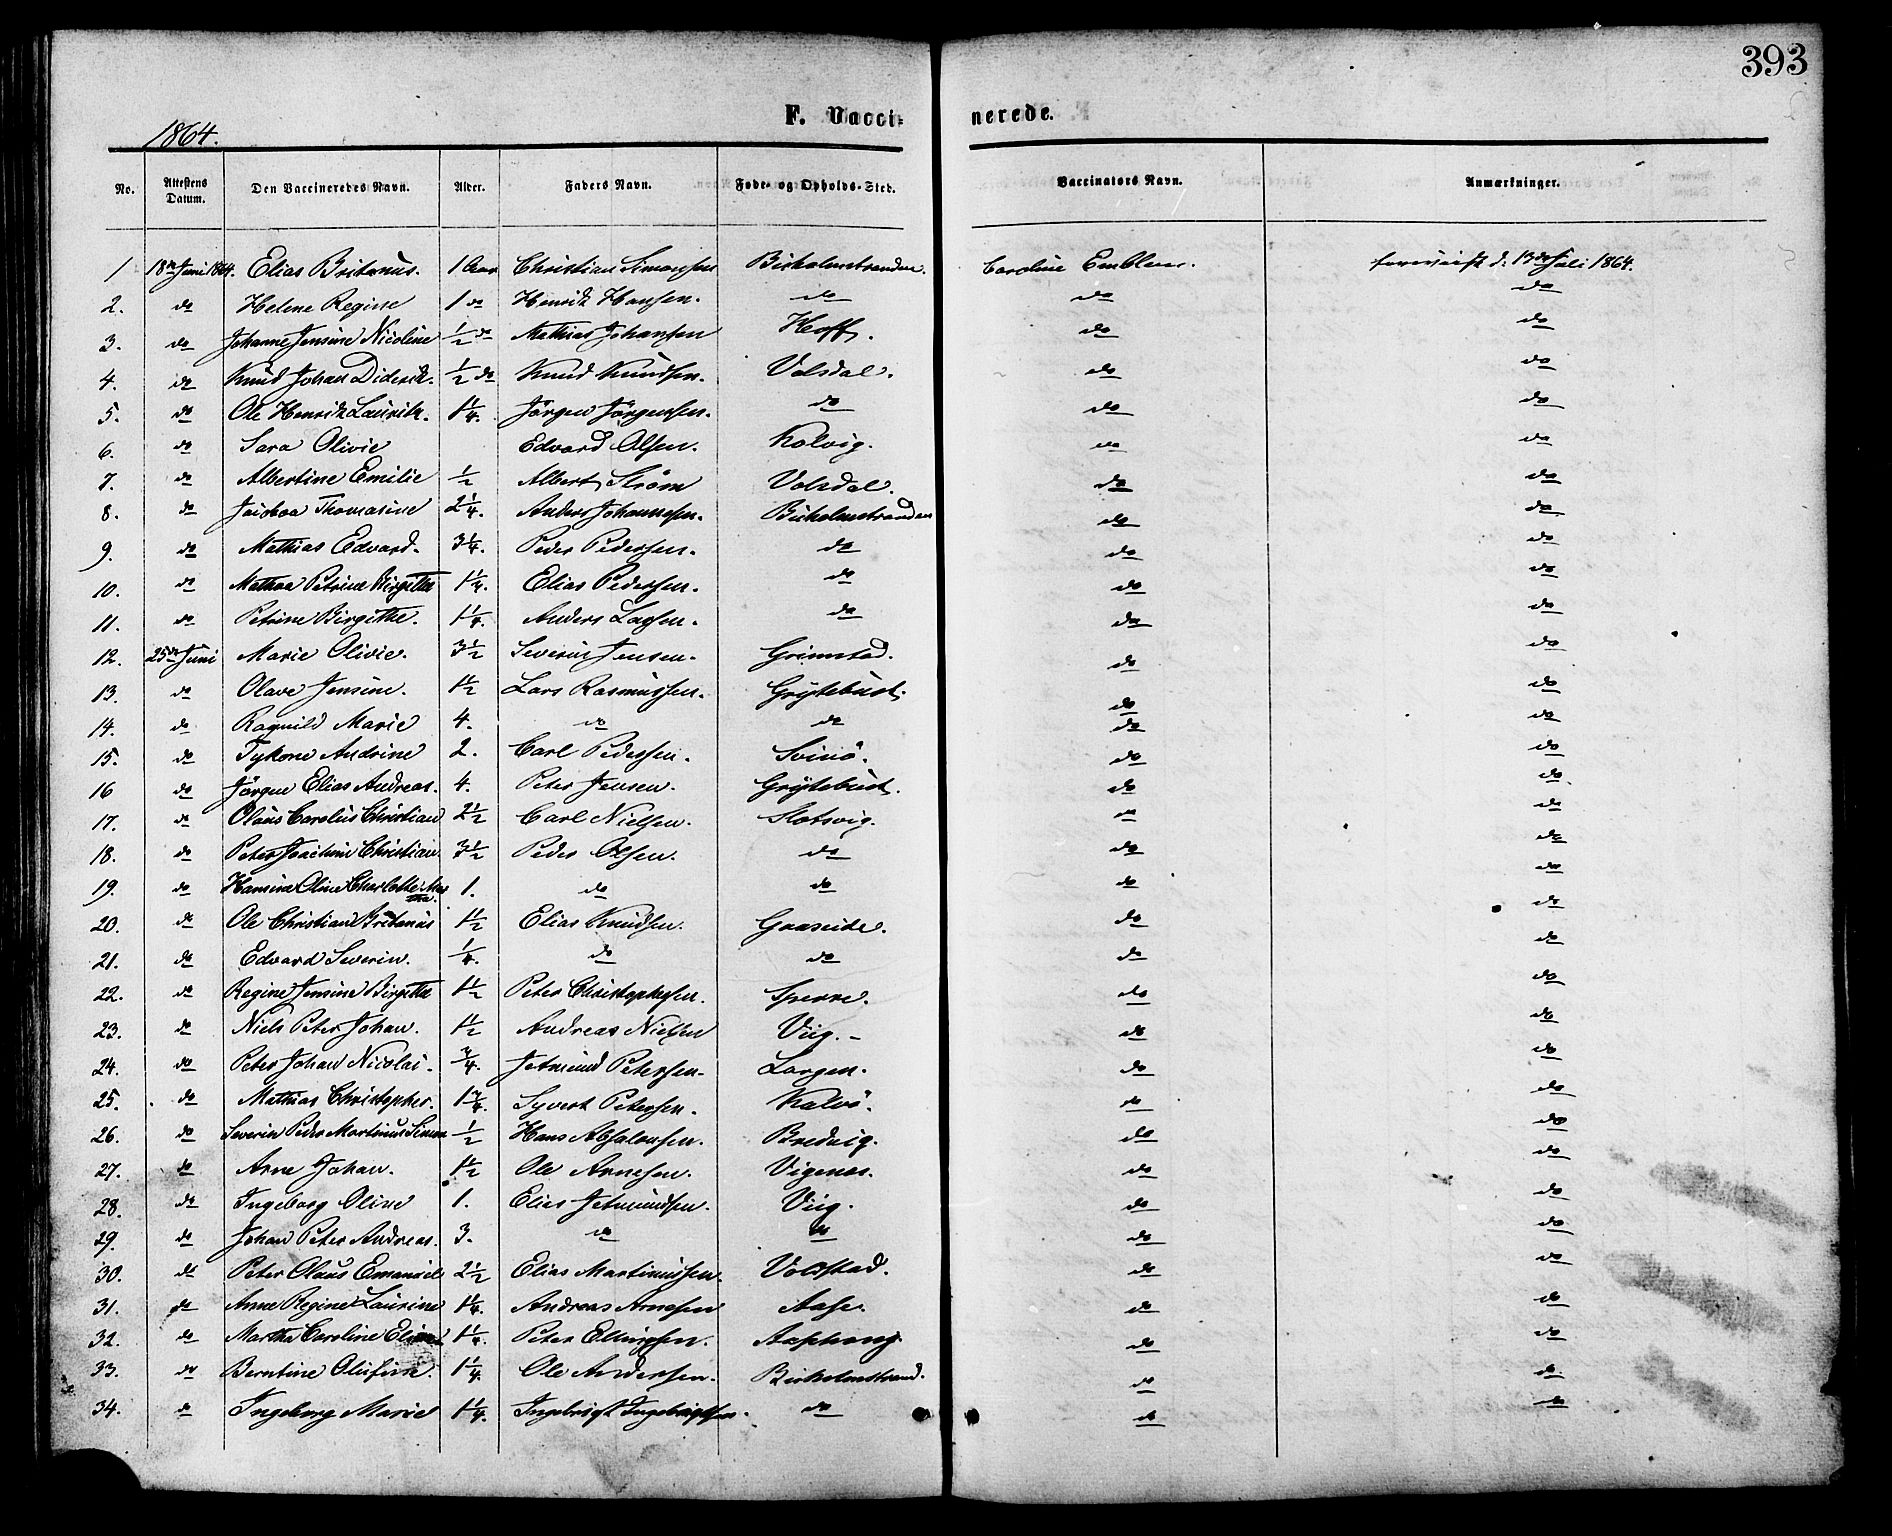 393
F. Vacci- nerede.
1864.
No. Attestens Datum. Den Vaccineredes Navn. Alder. Faders Navn. Føde- og Opholds-Sted. Vaccinators Navn. Anmærkninger.
1 18de Juni 1864. Elias Britanus. 1 Aar Christian Simonsen Birkholmstranden. Caroline Emblem. foreviist d. 13de Juli 1864.
2. do Helene Regine 1 do Henrik Hansen. do do do
3. do Johanne Jensine Nicoline 1/2 do Mathias Johansen Hoff. do do
4. do Knud Johan Diderik. 1/2 do Knud Knudsen. Volsdal. do do
5. do Ole Henrik Lauritz. 1 1/4. Jörgen Jörgensen. do do do
6. do Sara Olivie Edvard Olsen. Kolvig. do do
7. do Albertine Emilie 1/2 Albert Strøm Volsdal. do do
8. do Jacobea Thomasine 2 1/4. Anders Johannesen. Birkholmstranden do do
9. do Mathias Edvard. 3 1/4. Peder Pedersen. do do do
10. do Mathea Petrine Birgitthe Elias Pedersen. do do do
11. do Petrine Birgitthe. 1 1/4. Anders do do do
12. 25de Juni Marie Olivie. 3 1/2 Severin Jensen. Grimstad. do do
13. do Olave Jensine. 1 1/2 Lars Rasmussen. Grytebust. do do
14. do Ragnild Marie 4. do do do do
15. do Andrine 2. Carl Pedersen. Svinö. do do
16 do Jörgen Elias Andreas. 4. Peter Jensen. Grytebust. do do
17. do Olaus Carolus Christian 2 1/2 Carl Nielsen. Slotsvig. do do
18. do Peter Joachim Christian. 3 1/2 Peder Olsen. do do do
19. do Hansine Oline Charlotte 1. do do do do
20. do Ole Christian Britanus 1 1/2 Elias Knudsen. Gaaseide. do do
21. do Edvard Severin. 1/4. do do do do
22. do Regine Jensine Birgitte 1 1/2 Peter Christophersen. Sperre. do do
23. do Niels Peter Johan. 1 1/2 Andreas Nielsen Viig. - do do
24. do Peter Johan Nicolai. 3/4. Jetmund Petersen. Lorgen. do do
25. do Mathias Christopher. 1 3/4. Syvert Petersen. Kalvö. do do
26. do Severin Peder Martinus Simon 1/2 Hans Absalonsen. Bredvig. do do
27. do Arne Johan. 1 1/2 Ole Arnesen. Vigenes. do do
28. do Ingeborg Oline 1. Elias Jetmundsen. Viig. do do
29. do Johan Peter Andreas. 3. do do do do
30. do Peter Olaus Emanuel 2 1/2 Elias Martinussen. Volstad. do do
31. do Anne Regine Laurine 1 1/4. Andreas Arnesen Aase. do do
32. do Martha Caroline 1 1/4. Peter Ellingsen. do do
33. do Berntine 1 1/4. Ole Andersen. Birkholmstrand. do do
34. do Ingeborg Marie 1 1/4. Ingebrigt Ingebrigtsen. do do do